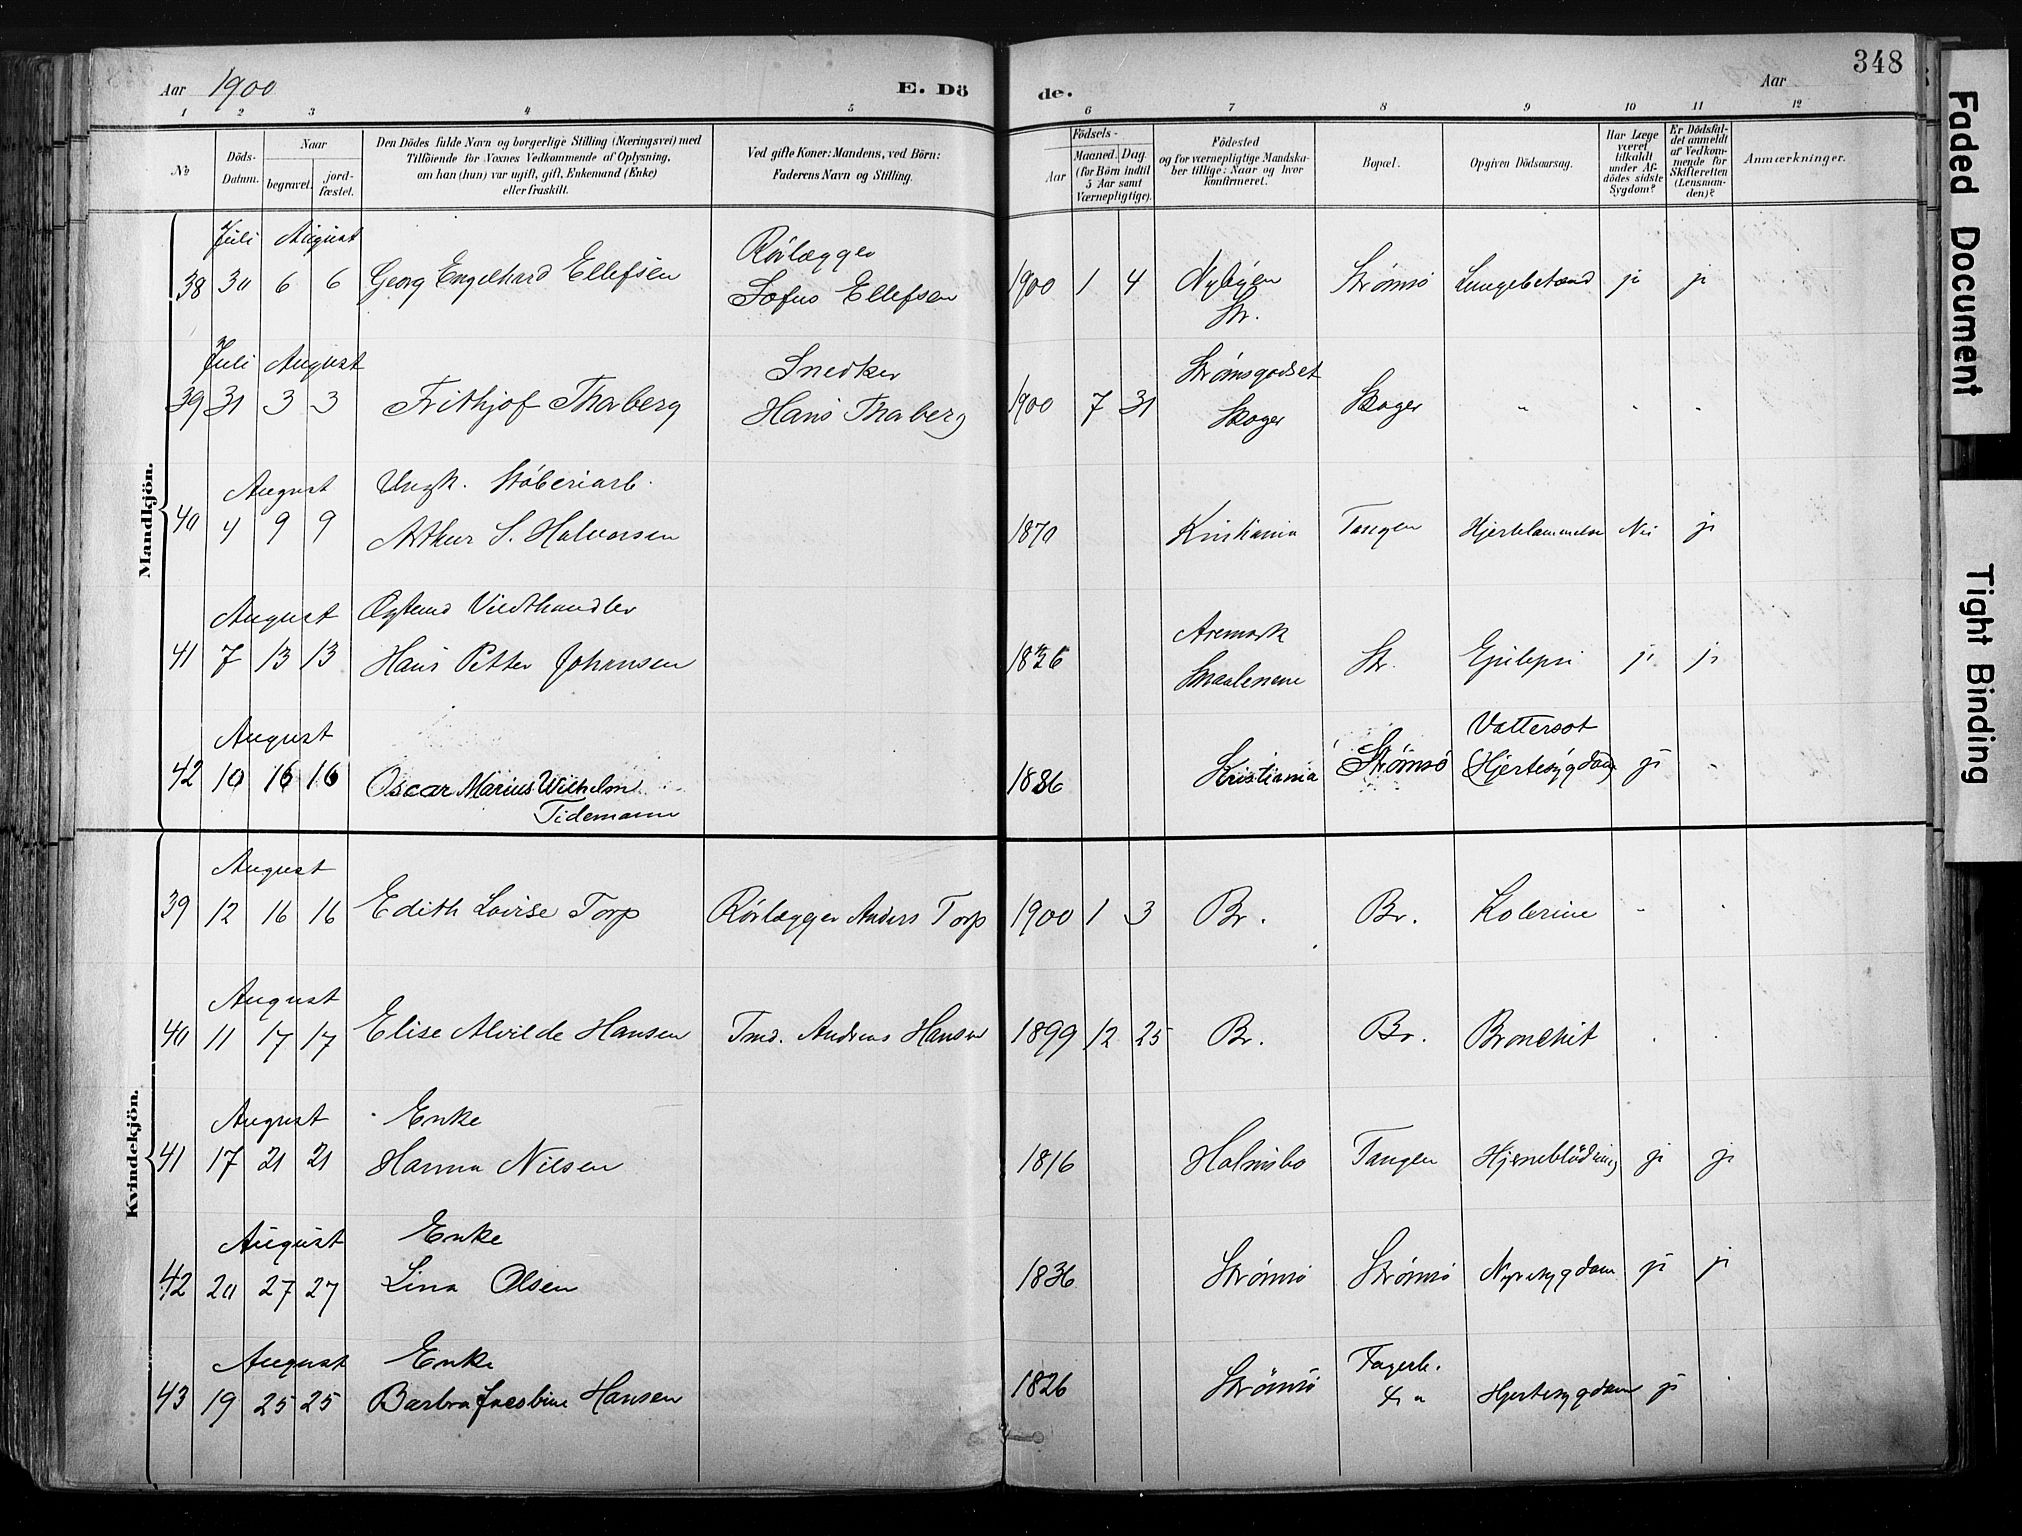 348
Aar 1900 E. Dö de. Aar
1 2 3 4 5 6 7 8 9 10 11 12
No
Döds-Datum.
Naar
begravet.
jord-fæstet.
Den Dödes fulde Navn og borgerlige Stilling (Næringsvei) med
Tilföiende for Voxnes Vedkommende af Oplysning,
om han (hun) var ugift, gift, Enkemand (Enke)
eller fraskilt.
Ved gifte Koner: Mandens, ved Börn:
Faderens Navn og Stilling.
Födsels-
Aar
Maaned. Dag.
(for Börn indtil
5 Aar samt
Værnepligtige).
Födested
og for værnepligtige Mandska-
ber tillige: Naar og hvor
konfirmeret.
Bopæl.
Opgiven Dödsaarsag.
Har Læge
været
tilkaldt
under Af-
dödes sidste
Sygdom?
Er Dödsfal-
det anmeldt
af Vedkom-
mende for
Skifteretten
(Lensman-
den)?
Anmærkninger.
Mandkjön.
Juli August Rörlægger
38 30 6 6 Georg Engelhard Ellefsen Sofus Ellefsen 1900 1 4 Nybyen Strømsø Lungebetænd ja ja
Str.
Juli August Snedker Strømsgodset
39 31 3 3 Frithjof Thorberg Hans Thorberg 1900 7 31 Skoger Skoger " " "
August Ungk. Støberiarb.
40 4 9 9 Arthur S. Halvorsen 1870 Kristiania Tangen Hjertelammelse Nei ja
August Vildthandler Aremark
41 7 13 13 Hans Petter Johansen Smaalenene Str. Epilepsi ja ja
August Vattersot
42 10 16 16 Oscar Marius Wilhelm 1886 Kristiania Strømsø (Hjertesygdom) ja "
Tidemann
Kvindekjön.
August
39 12 16 16 Edith Lovise Torp Rörlægger Anders Torp 1900 1 3 Br. Br. Kolerine " "
August
40 11 17 17 Elise Alvilde Hansen Tmd. Andreas Hansen 1899 12 25 Br. Br. Bronchit " "
August Enke
41 17 21 21 Hanna Nilsen 1816 Holmsbo Tangen Hjerneblödning ja ja
August Enke
42 20 27 27 Lina Olsen 1836 Strømsø Strømsø Nyresygdom ja ja
August Enke Fagerh.
43 19 25 25 Barbra Jacobine Hansen 1826 Strømsø Hjertesygdom ja "
Faded Document
Tight Binding